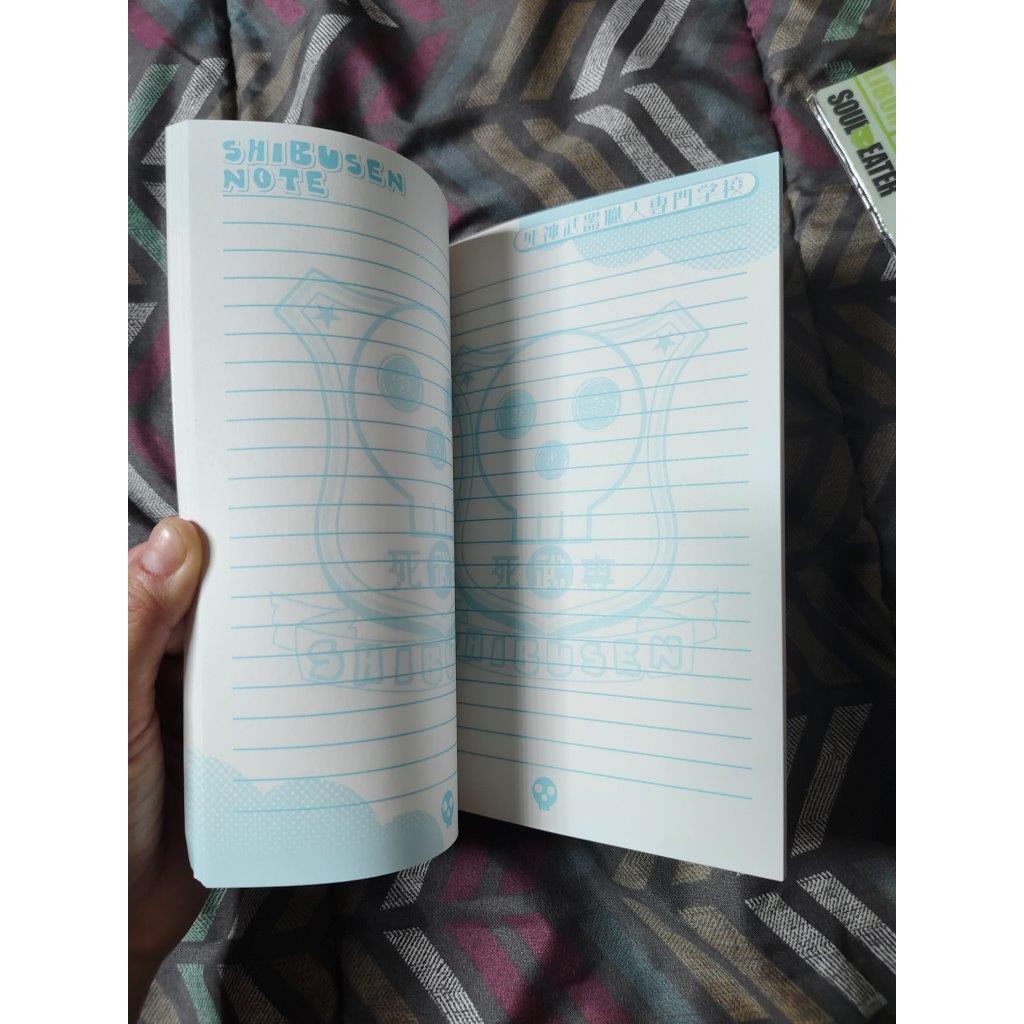 SHIBUSEN
NOTE
死武
SHIBU
死神武器職人専門学校
死武専
SHIBUSEN
SOUL EATER